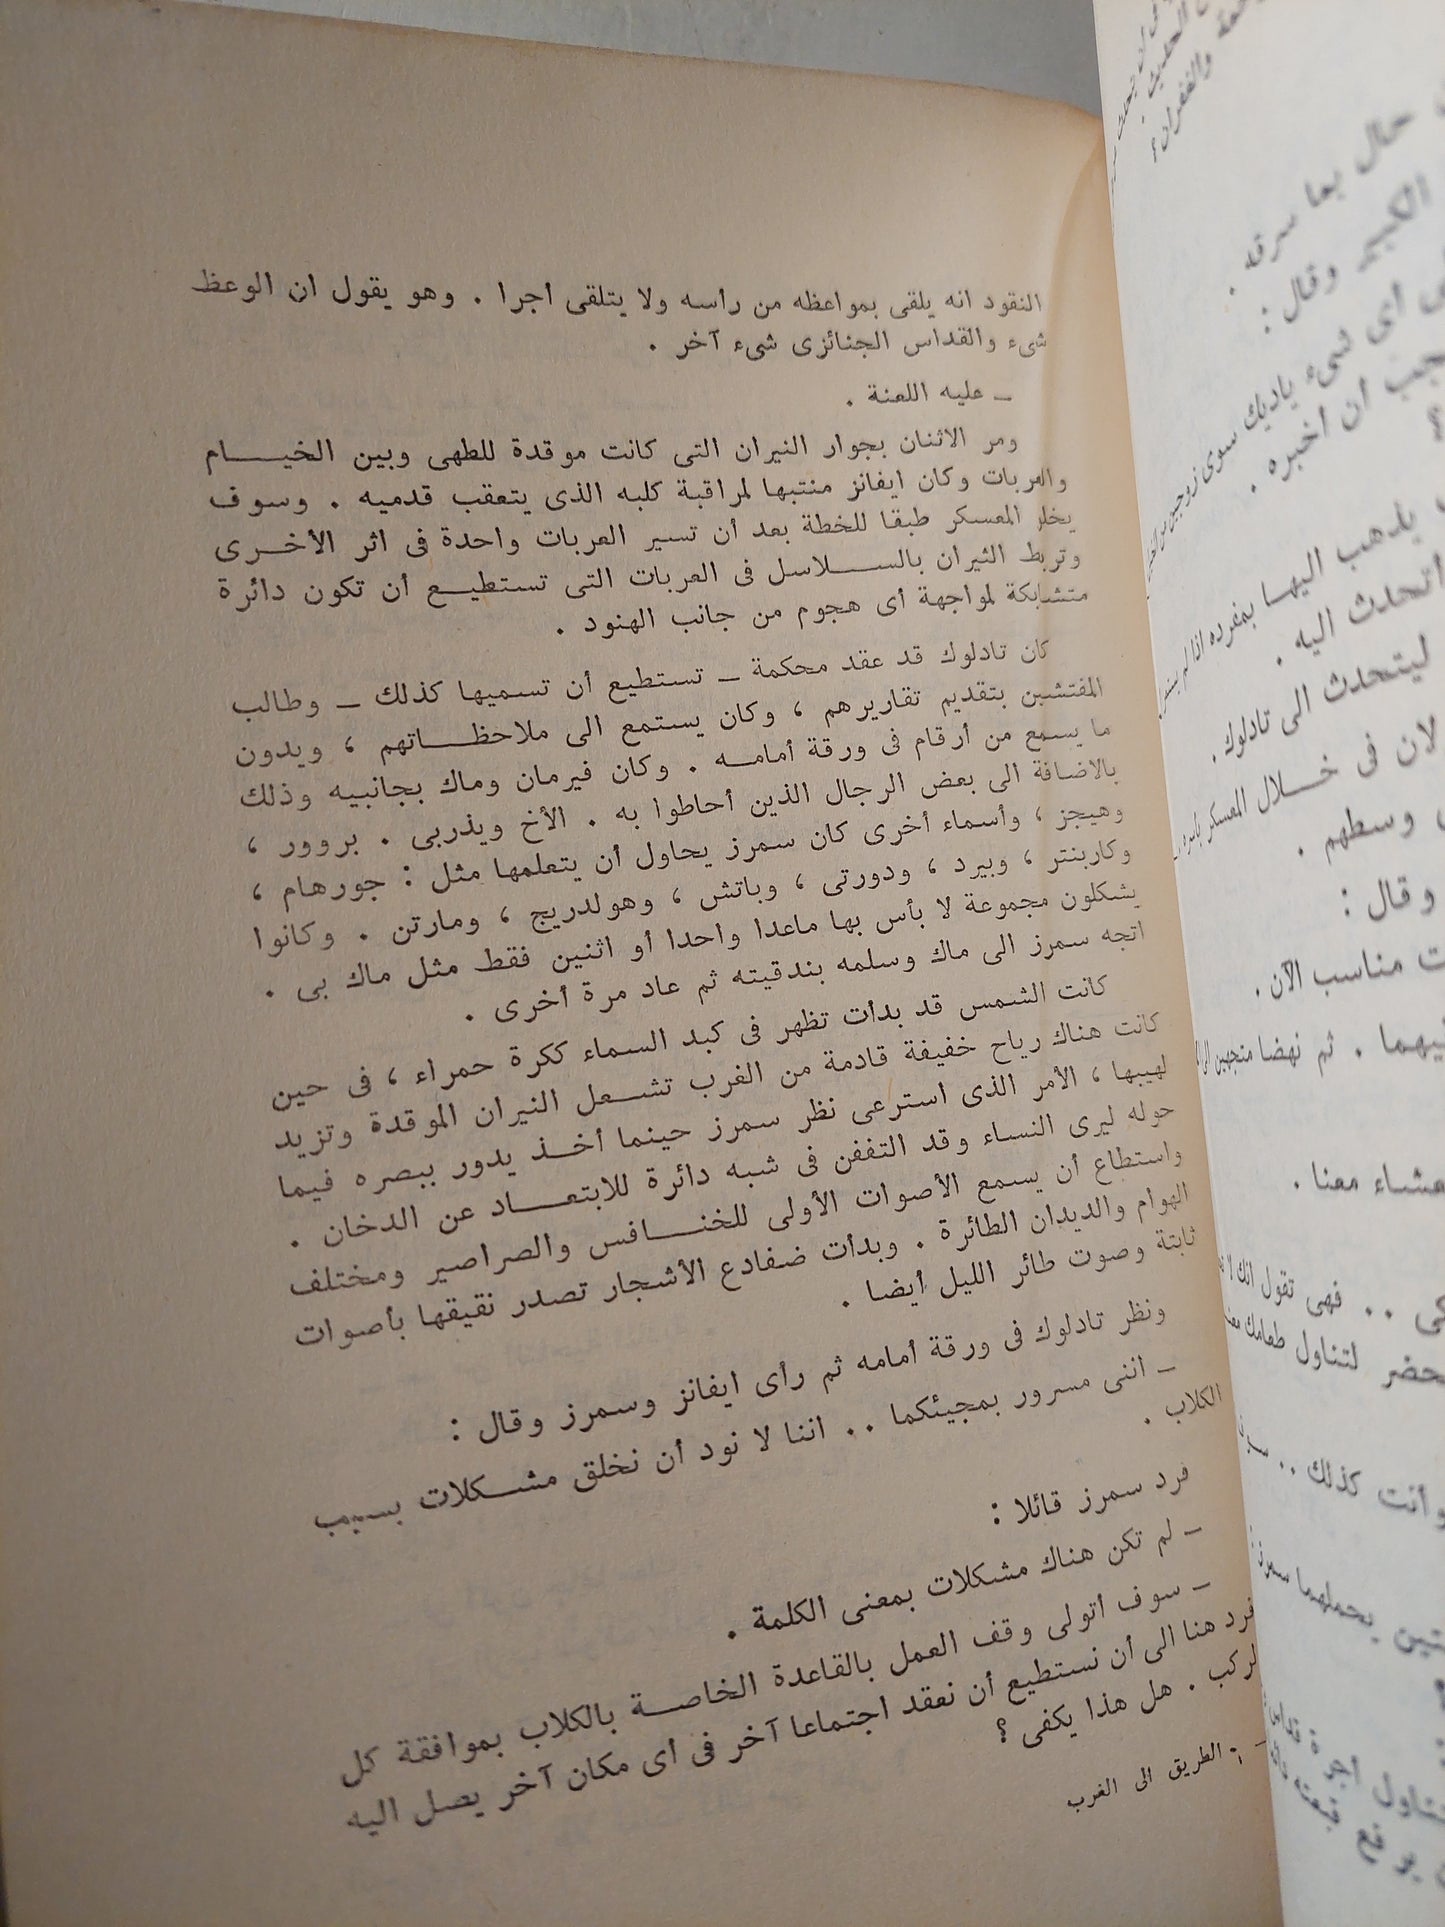 النقود انه يلقى بمواعظه من رأسه ولا يتلقى أجرا . وهو يقول ان الوعظ
شىء والقداس الجنائزى شىء آخر .
ـ عليه اللعنة .
ومر الاثنان بجوار النيران التى كانت موقدة للطهى وبين الخيـــام
والعربات وكان ايفانز منتبها لمراقبة كلبه الذى يتعقب قدميه . وسوف
يخلو المعسكر طبقا للخطة بعد أن تسير العربات واحدة فى اثر الأخـرى
وتربط الثيران بالســـلاسل فى العربات التى تستطيـع أن تكون دائرة
متشابكة لمواجهة أى هجوم من جانب الهنود .
كان تادلوك قد عقد محكمة ـ تستطيع أن تسميها كذلك ـ وطالب
المفتشين بتقديم تقاريرهم ، وكان يستمع الى ملاحظـــاتهم ، ويدون
ما يسمع من أرقام فى ورقة أمامـه . وكان فيرمان وماك بجانبيه وذلك
بالاضافة الى بعض الرجال الذين أحاطوا به . الأخ ويذربى . بروور ،
وهيجز ، وأسماء أخرى كان سمرز يحاول أن يتعلمها مثل : جورهام ،
وكاربنتر ، وبيرد ، ودورتى ، وباتش ، وهولدريج ، ومارتن . وكانوا
يشكلون مجموعة لا بأس بها ماعدا واحدا أو اثنين فقط مثل ماك بى .
اتجه سمرز الى ماك وسلمه بندقيته ثم عاد مرة أخرى .
كانت الشمس قد بدأت تظهر فى كبد السماء ككرة حمراء ، فى حين
كانت هناك رياح خفيفة قادمة من الغرب تشـعل النيران الموقدة وتزيد
لهيبها ، الأمر الذى استرعى نظر سمرز حينما أخـذ يدور ببصره فيما
حوله ليرى النساء وقد التففن فى شبه دائرة للابتعـــاد عن الدخان .
واستطاع أن يسمع الأصوات الأولى للخنـــافس والصراصير ومختلف
الهوام والديدان الطائرة . وبدأت ضفادع الأشجار تصدر نقيقها بأصوات
ثابتة وصوت طائر الليل أيضا .
ونظر تادلوك فى ورقة أمامه ثم رأى ايفانز وسمرز وقال :
ـ اننى مسرور بمجيئكما .. اننا لا نود أن نخلق مشـكلات بسبب
الكلاب .
فرد سمرز قائلا :
ـ لم تكن هناك مشكلات بمعنى الكلمة .
ـ سوف أتولى وقف العمل بالقاعدة الخاصـة بالكلاب بموافقة كل
فرد هنا الى أن نستطيع أن نعقد اجتماعا آخر فى أى مكان آخر يصل اليه
الركب . هل هذا يكفى ؟
الطريق الى الغرب
حال بما سرقه .
وقال :
أى شىء ياديك سوى زوجين من
أن أخبره .
يذهب اليهـا بمفرده اذا لم
اتحدث اليه .
ليتحدث الى تادلوك .
فى خـــلال المعسكر
وسطهم .
وقال :
مناسب الآن .
ثم نهضا متجهين الى
معنا .
.. فهى تقول انك لا
لتناول طعامك
وأنت كذلك ..
يحملهما
أجرة